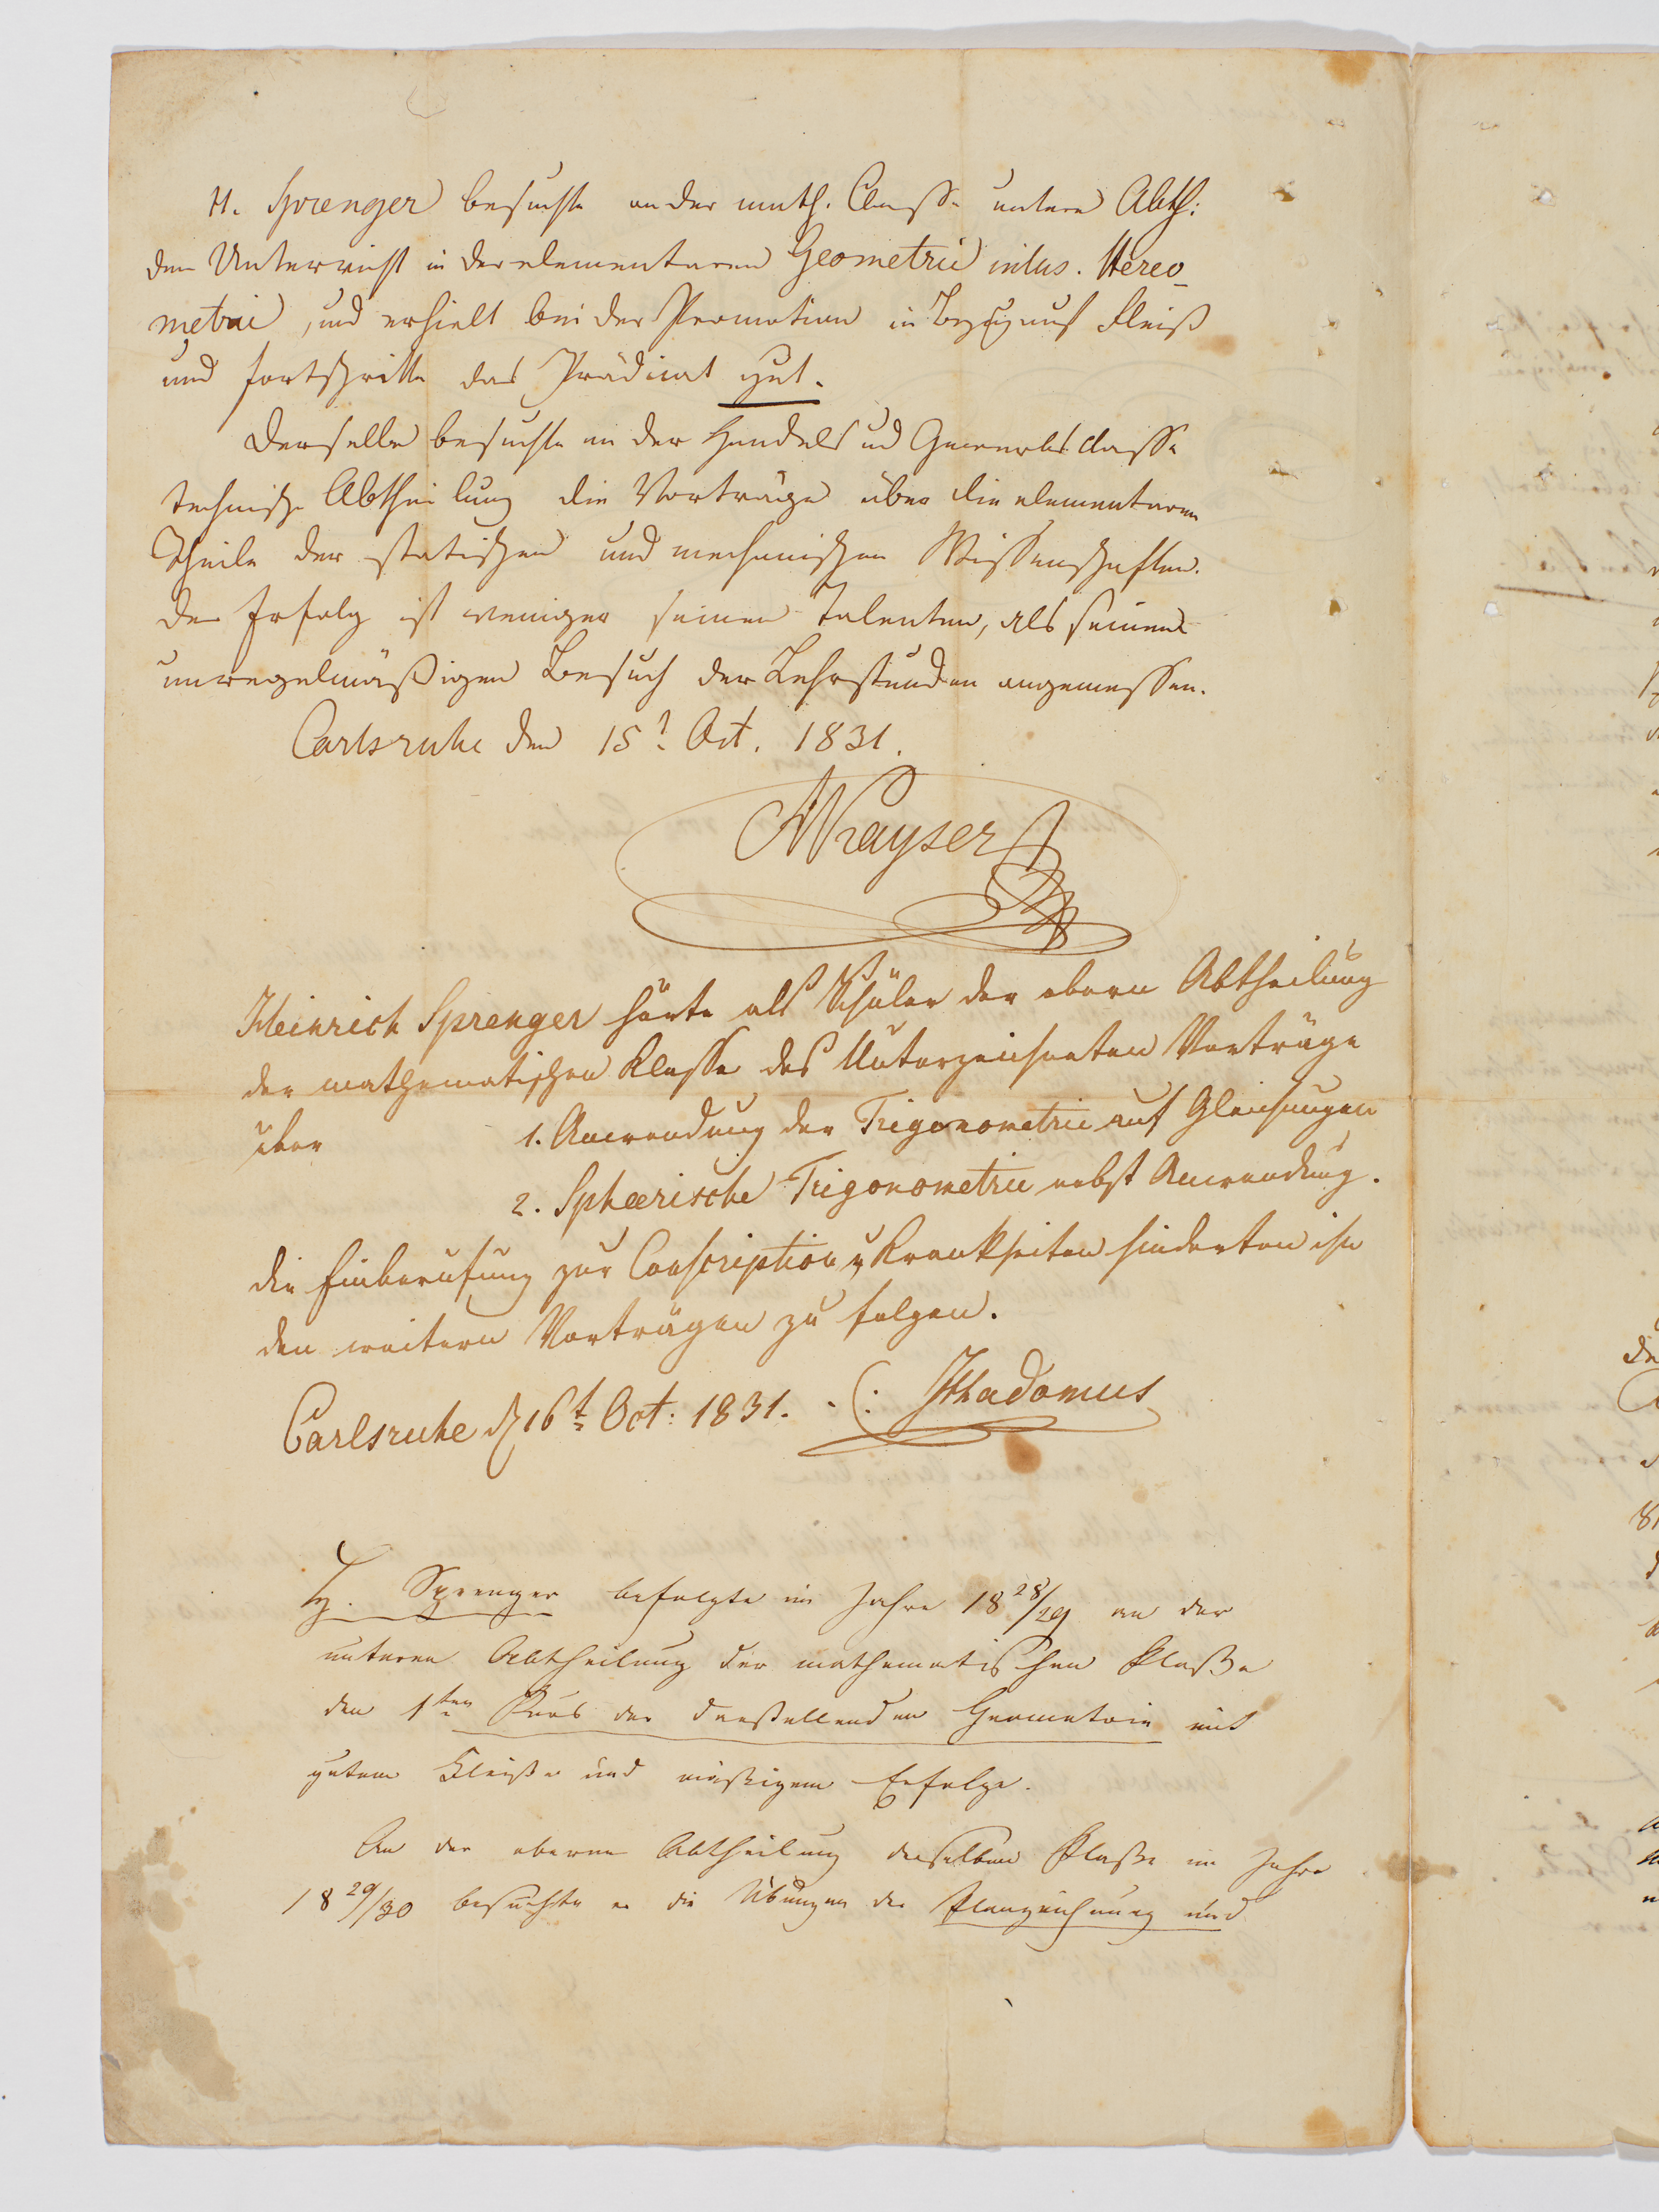 H. Sprenger besuchte an der math. Classe untere Abth:
den Unterricht in der elementaren Geometrie inclus. Stereo-
metrie, und erhielt bei der Promotion in Bezug auf Fleiß
und Fortschritte das Prädicat gut.
Derselbe besuchte an der Handels und Gewerbsclasse
technische Abtheilung die Vorträge über die elementaren
Theile der statischen und mechanischen Wissenschaften.
Der Erfolg ist weniger seinen Talenten, als seinem
unregelmäßigen Besuch der Lehrstunden angemessen.
Carlsruhe den 15t. Oct. 1831.
Kayser
Heinrich Sprenger hörte als Schüler der obern Abtheilung
der mathematischen Klasse des Unterzeichneten Vorträge
über 1. Anwendung der Trigonometrie auf Gleichungen
2. Sphærische Trigonometrie nebst Anwendung.
die Einberufung zur Conscription u Krankheiten hinderten ihn
den weitern Vorträgen zu folgen.
Carlsruhe d 16t Oct: 1831. Ladomus
H. Sprenger befolgte im Jahre 1828/29 an der
unteren Abtheilung der mathematischen Klaße
den 1ten Kurs der darstellenden Geometrie mit
gutem Fleiße und mäßigem Erfolge.
An der oberen Abtheilung derselben Klaße im Jahre
1829/30 besuchte er die Übungen der Planzeichnung und